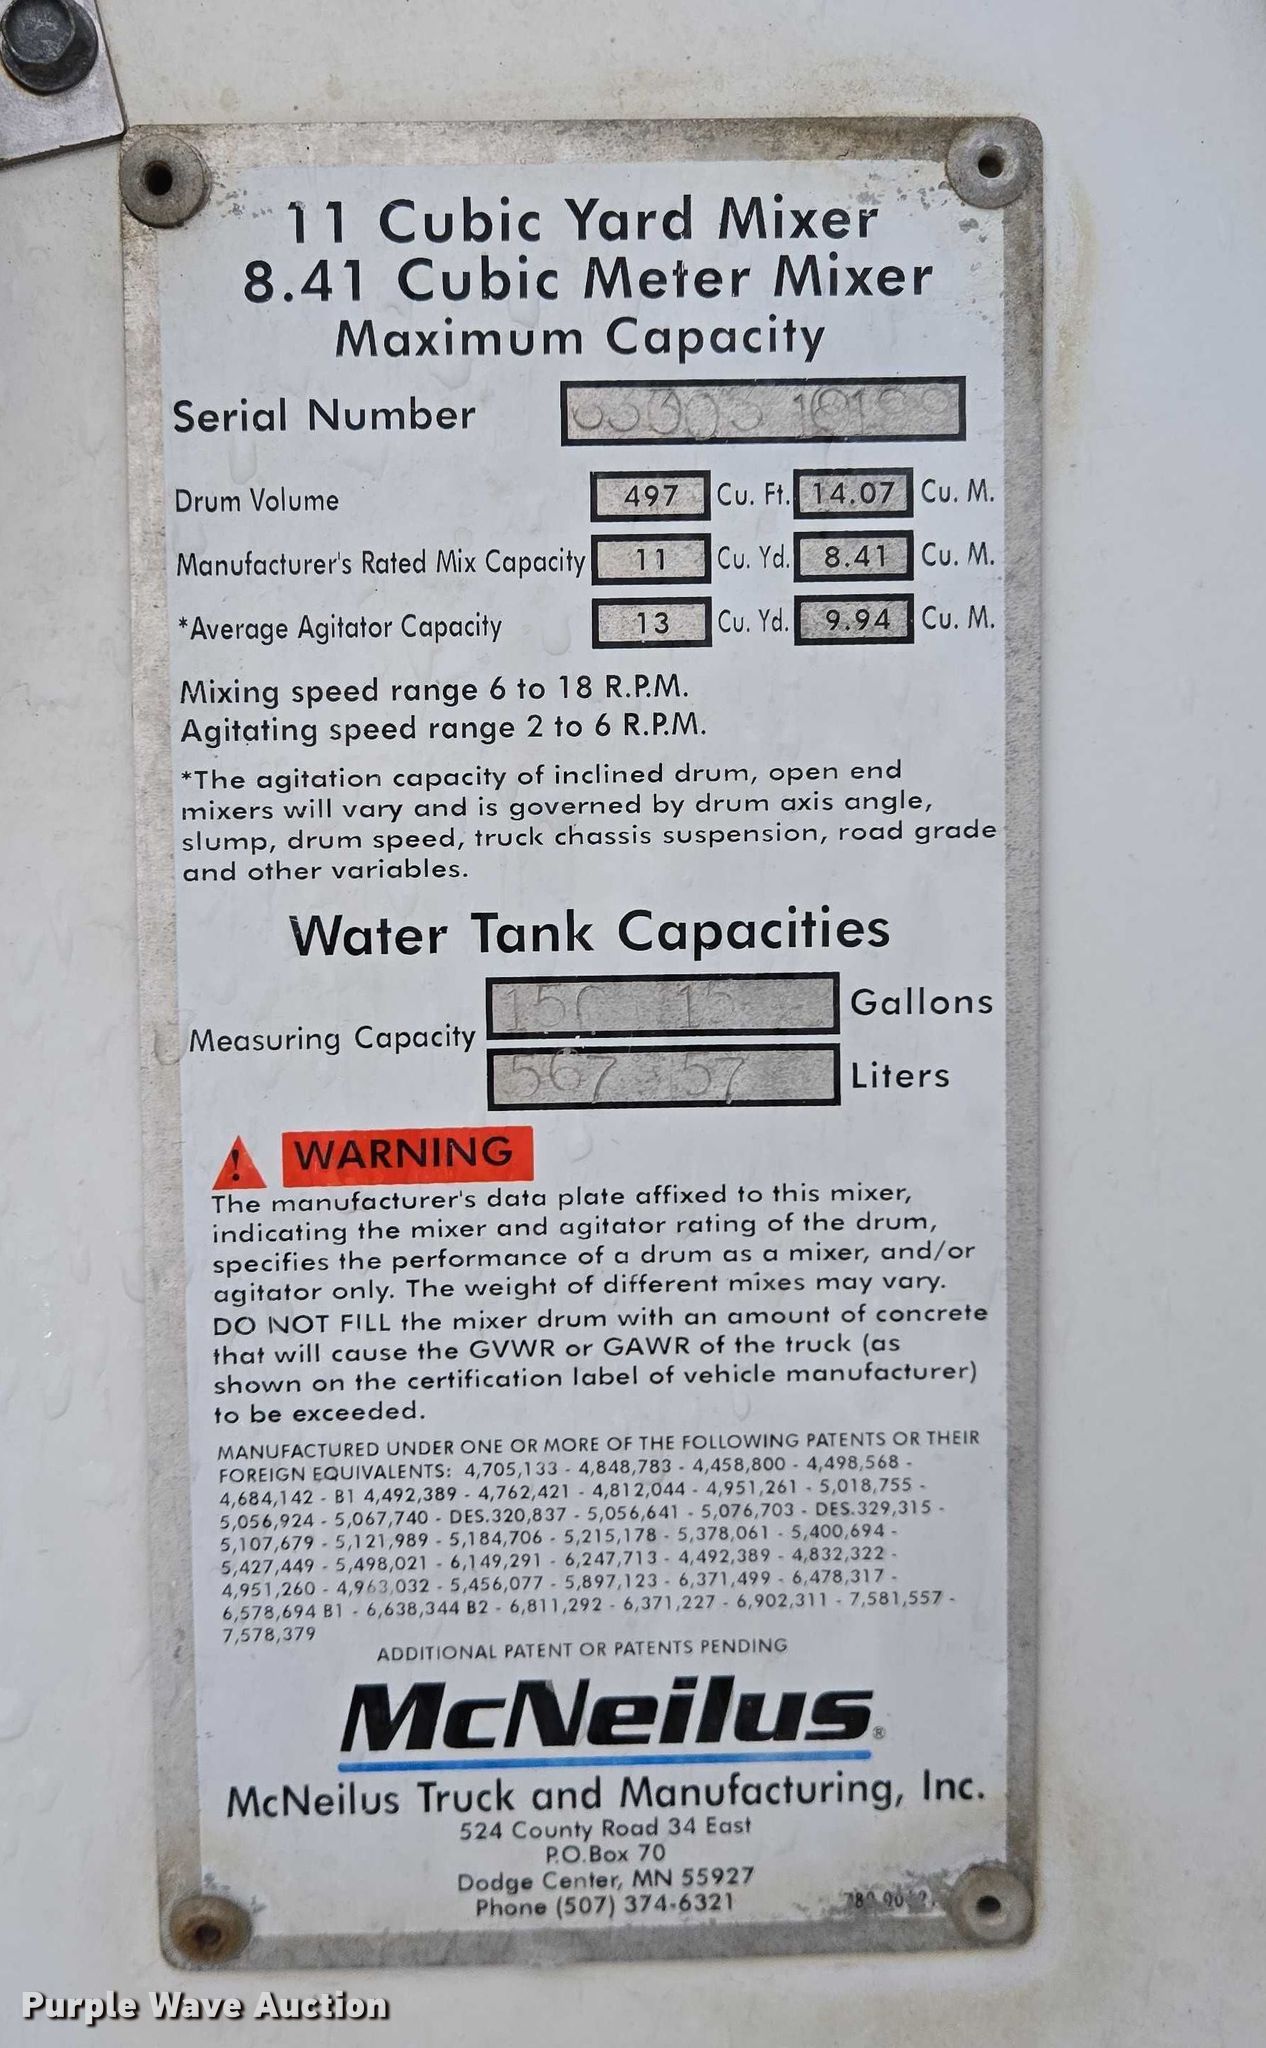 11 Cubic Yard Mixer
8.41 Cubic Meter Mixer
Maximum Capacity
Serial Number
Drum Volume 497 Cu. Ft. 14.07 Cu. M.
Manufacturer's Rated Mix Capacity 11 Cu. Yd. 8.41 Cu. M.
*Average Agitator Capacity 13 Cu. Yd. 9.94 Cu. M.
Mixing speed range 6 to 18 R.P.M.
Agitating speed range 2 to 6 R.P.M.
*The agitation capacity of inclined drum, open end
mixers will vary and is governed by drum axis angle,
slump, drum speed, truck chassis suspension, road grade
and other variables.
Water Tank Capacities
Measuring Capacity
Gallons
567 57 Liters
! WARNING
The manufacturer's data plate affixed to this mixer,
indicating the mixer and agitator rating of the drum,
specifies the performance of a drum as a mixer, and/or
agitator only. The weight of different mixes may vary.
DO NOT FILL the mixer drum with an amount of concrete
that will cause the GVWR or GAWR of the truck (as
shown on the certification label of vehicle manufacturer)
to be exceeded.
MANUFACTURED UNDER ONE OR MORE OF THE FOLLOWING PATENTS OR THEIR
FOREIGN EQUIVALENTS: 4,705,133 - 4,848,783 - 4,458,800 - 4,498,568 -
4,684,142 - B1 4,492,389 - 4,762,421 - 4,812,044 - 4,951,261 - 5,018,755 -
5,056,924 - 5,067,740 - DES.320,837 - 5,056,641 - 5,076,703 - DES.329,315 -
5,107,679 - 5,121,989 - 5,184,706 - 5,215,178 - 5,378,061 - 5,400,694 -
5,427,449 - 5,498,021 - 6,149,291 - 6,247,713 - 4,492,389 - 4,832,322 -
4,951,260 - 4,963,032 - 5,456,077 - 5,897,123 - 6,371,499 - 6,478,317 -
6,578,694 B1 - 6,638,344 B2 - 6,811,292 - 6,371,227 - 6,902,311 - 7,581,557 -
7,578,379
ADDITIONAL PATENT OR PATENTS PENDING
McNeilus®
McNeilus Truck and Manufacturing, Inc.
524 County Road 34 East
P.O.Box 70
Dodge Center, MN 55927
Phone (507) 374-6321
Purple Wave Auction